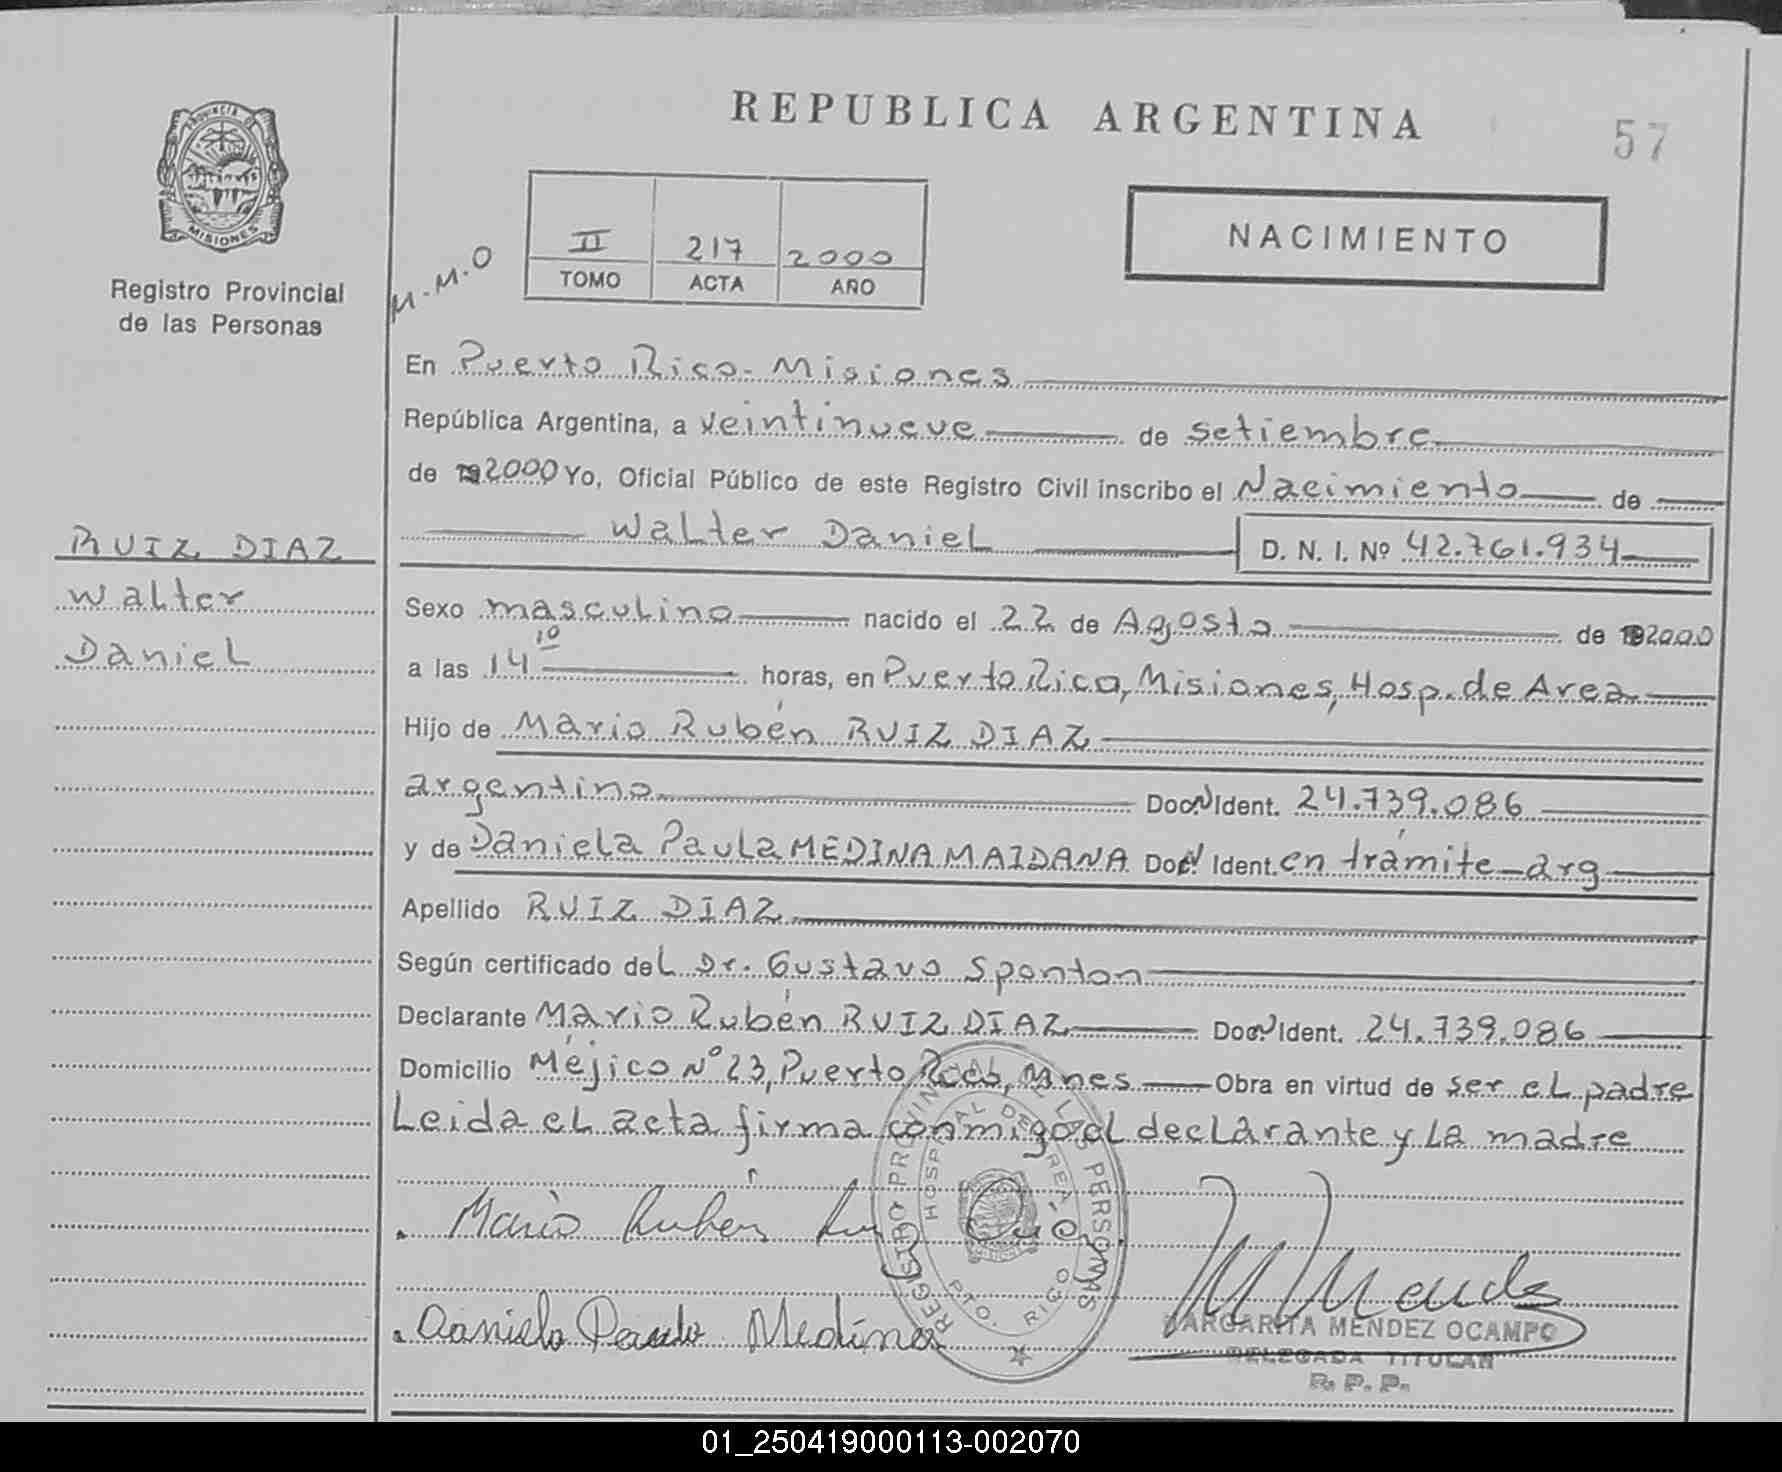 REPUBLICA ARGENTINA
57
PROVINCIA DE
MISIONES
Registro Provincial
de las Personas
M.M.O
II 217 2000
TOMO ACTA AÑO
NACIMIENTO
En Puerto Rico - Misiones
República Argentina, a veintinueve de setiembre
de 192000 Yo, Oficial Público de este Registro Civil inscribo el Nacimiento de
Walter Daniel D. N. I. Nº 42.761.934
RUIZ DIAZ
Walter
Daniel
Sexo masculino nacido el 22 de Agosto de 192000
a las 14 10 horas, en Puerto Rico, Misiones, Hosp. de Area
Hijo de Mario Rubén RUIZ DIAZ
argentino Doc. N Ident. 24.739.086
y de Daniela Paula MEDINA MAIDANA Doc. N Ident. en trámite - arg
Apellido RUIZ DIAZ
Según certificado del Dr. Gustavo Sponton
Declarante Mario Rubén RUIZ DIAZ Doc. N Ident. 24.739.086
Domicilio Méjico Nº 23, Puerto Rico, Mnes Obra en virtud de ser el padre
Leida el acta firma conmigo el declarante y la madre
REGISTRO PROVINCIAL DE LAS PERSONAS
HOSPITAL DE AREA
PTO. RICO
Mario Ruben Ruiz Diaz
Daniela Paula Medina
M Mendez
MARGARITA MENDEZ OCAMPO
DELEGADA TITULAR
R. P. P.
01_250419000113-002070